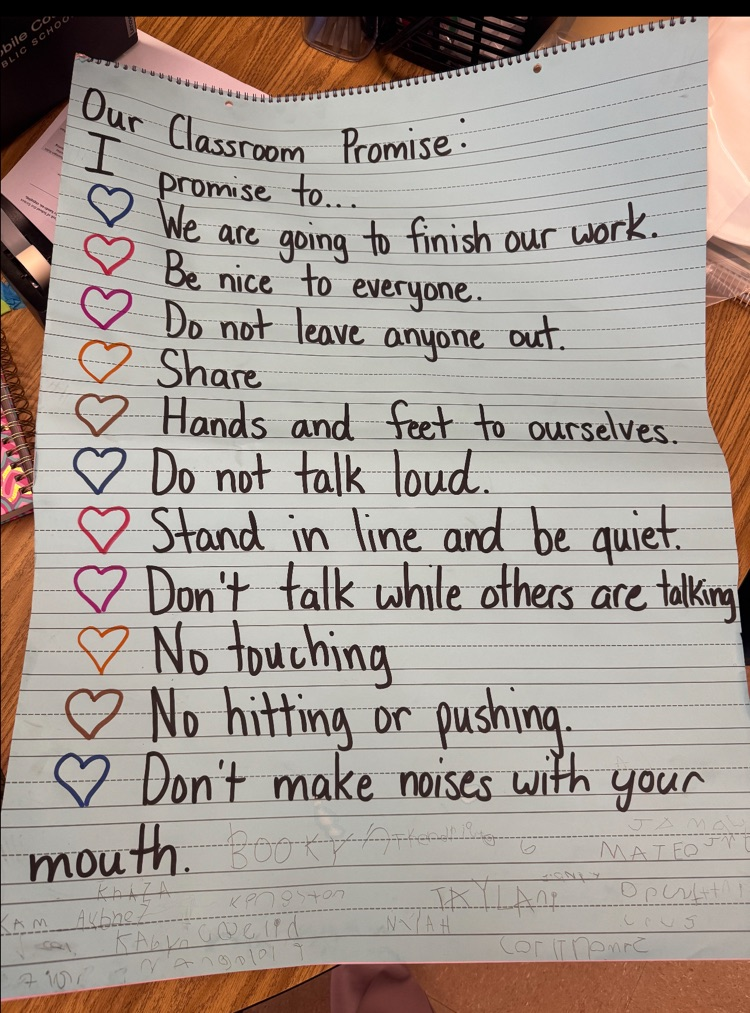 Our Classroom Promise:
I promise to...
We are going to finish our work.
Be nice to everyone.
Do not leave anyone out.
Share
Hands and feet to ourselves.
Do not talk loud.
Stand in line and be quiet.
Don't talk while others are talking
No touching
No hitting or pushing.
Don't make noises with your
mouth.
BOOKY
MATEO
NYIAH